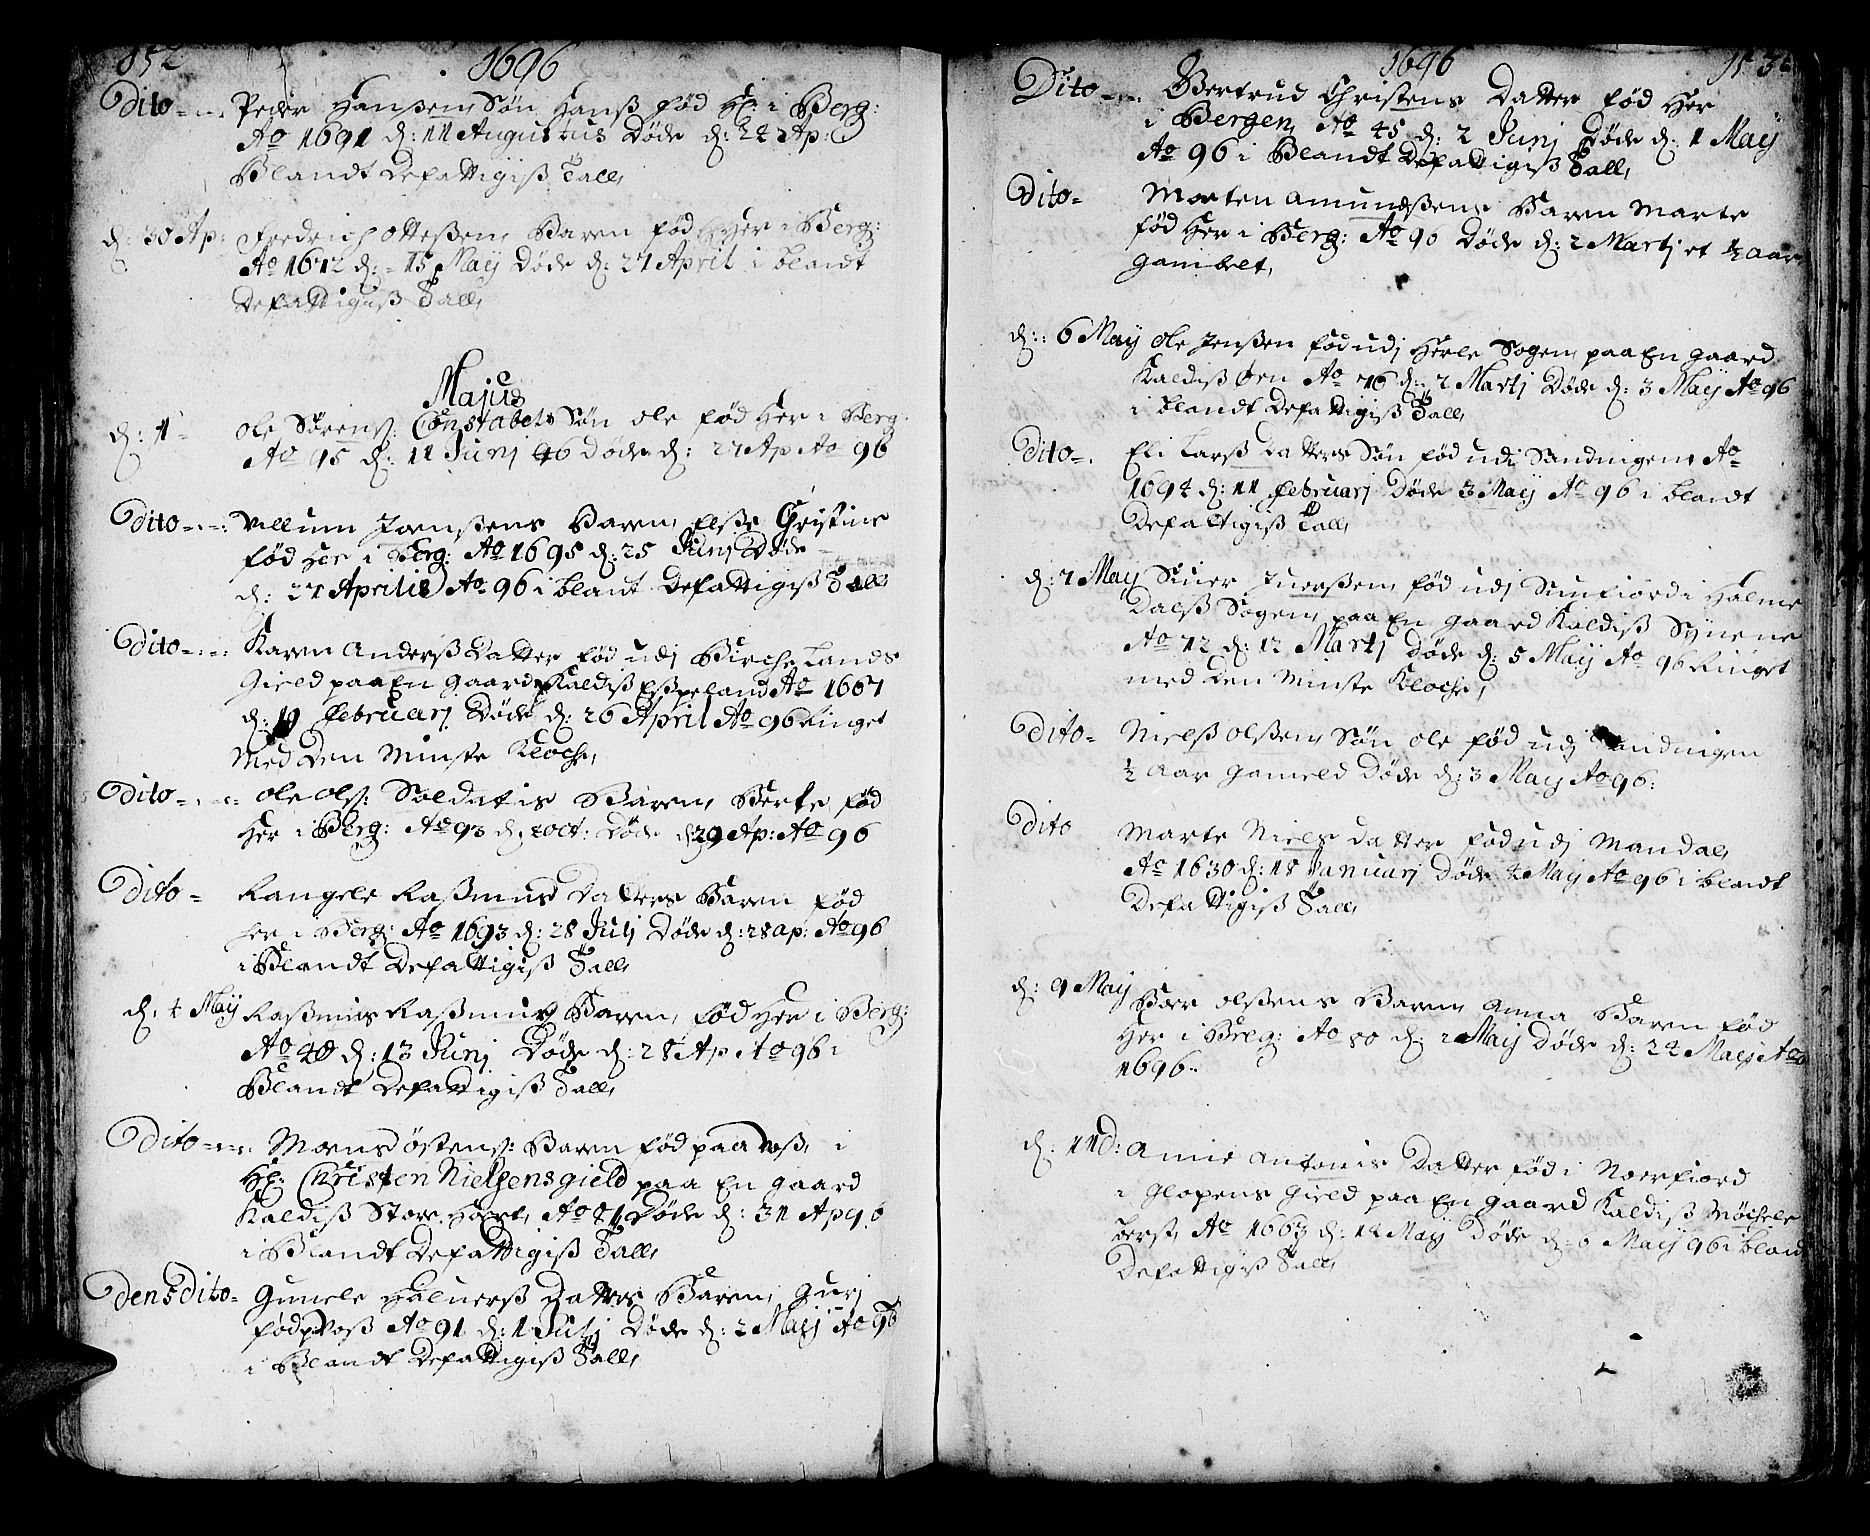 152
1696
Dito Peder Hanßens Søn Hanß fød Her i Berg:
Ao 1691 d: 11 Augustus Døde d: 24 Ap:
Blandt Defattigiß Tall,
d: 30 Ap: Fredrich Otteßens Baren fød Her i Berg:
Ao 1672 d: 15 Maij Døde d: 27 April i blandt
Defattigiß Tall,
Majus
d: 1 Ole Sørens: Constabels Søn Ole fød Her i Berg:
Ao 95 d: 11 Junj Døde d: 27 Ap Ao 96
Dito Villum Jørnßens Baren, Elße Christine
fød Her i Berg: Ao 1695 d: 25 Junj Døde
d: 27 Aprilis Ao 96 i blant Defattigiß Tall
Dito Karen Anderß Datter fød udj Birche Lands
Gield paa En gaard Kaldiß Eßpeland Ao 1667
d: 19 Februarj Døde d: 26 April Ao 96 Ringet
Med Den Minste Kloche,
Dito Ole Olß: Soldatis Baren, Berte fød
Her i Berg: Ao 93 d: 2 Oct: Døde d 29 Ap: Ao 96
Dito Rangele Raßmus Datters Baren fød
her i Berg: Ao 1693 d: 28 Julj Døde d: 28 ap: Ao 96
i Blandt Defattigiß Tall,
d. 4 Maij Raßmus Raßmus Baren, fød Her i Berg:
Ao d: 13 Junj Døde d: 28 Ap Ao 96 i
Blandt Defattigiß Tall,
Dito Moens Østens: Baren fød paa Voß, i
Hr: Christen Nielsens gield paa En gaard
Kaldiß Store Ao Døde d: 31 Ap 96
i Blandt Defattigiß Tall,
Dens Dito Gunele Haluerß Datters Baren, Gurj
fød p Voß Ao 91 d: 1 Julj Døde d: 2 Maij Ao 96
i Blandt Defattigiß Tall,
1696
153
Dito Bertrud Christens Datter fød Her
i Bergen, Ao 45 d: 2 Junj Døde d: 1 Maij
Ao 96 i Blandt Defattigiß Tall,
Dito Morten Amundßens Baren Marte
fød Her i Berg: Ao 90 Døde d: 2 Martj et ½ Aar
gambelt,
d: 6 Maij Ole Jenßen fød udj Herle Sogen, paa En gaard
Kaldiß Øen Ao 76 d: 7 Martj Døde d: 3 Maij Ao 96
i blandt Defattigiß Tall,
Dito Eli Larß Datters Søn fød udi Sanduigen Ao
1694 d: 11 Februarj Døde 3 Maij Ao 96 i blandt
Defattigiß Tall,
d: 7 Maij Siuer Juerßen, fød udj Sunfiord i Holme
Dalß Sogen, paa En gaard Kaldiß Synene
Ao 72 d: 12 Martj Døde d: 5 Maij Ao 96 Ringet
med Den Minste Kloche,
Dito Nielß Olßens Søn Ole fød udj Sanduigen
½ Aar gameld Døde d: 3 Maij Ao 96:
Dito Marte Niels Datter fød udj Mandal,
Ao 1630 d: 18 Januarj Døde 2 Maij Ao 96 i blandt
Defattigiß Tall,
d: 9 Maij Olßens Baren, Anna Baren fød
Her i Breg: Ao 80 d: 2 Maij Døde d: 22 Maij Ao
1696.
d: 11 d: Anne Antonis Datter fød i Noerfiord
i Glopens Gield paa En gaard Kaldiß Møchele
berst, Ao 1663 d: 12 Maij Døde d: 6 Maij 96 i bland
Defattigiß Tall,